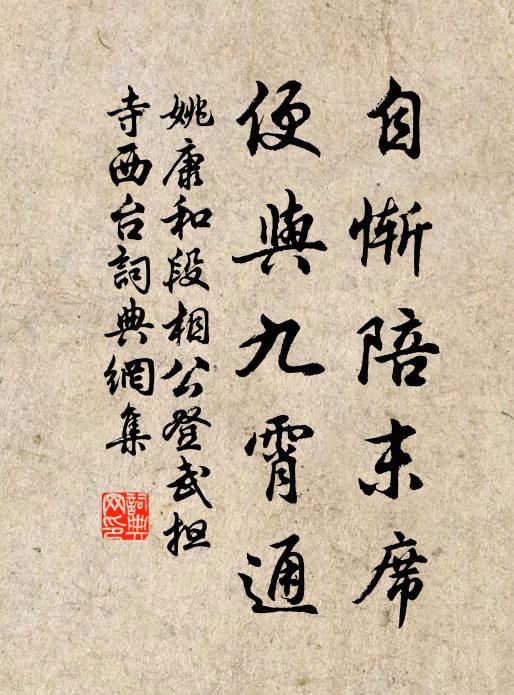 自慚陪末席
便與九霄通
姚康和段相公登武担
寺西台詞典網集
詞典
网印